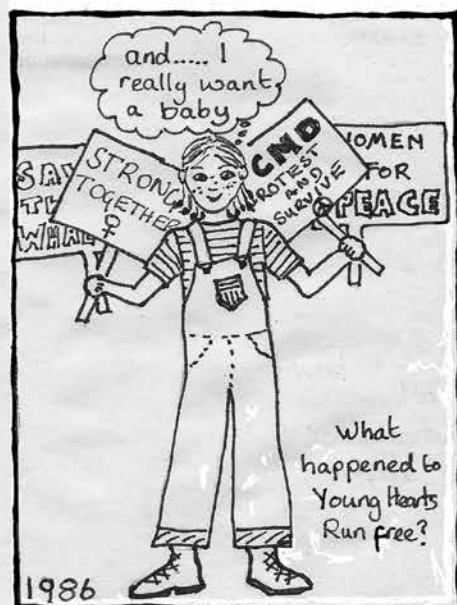 and..... I
really want
a baby
SAV
TH
WHAL
STRONG
TOGETHER
♀
CND
PROTEST
AND
SURVIVE
WOMEN
FOR
PEACE
What
happened to
Young Hearts
Run free?
1986